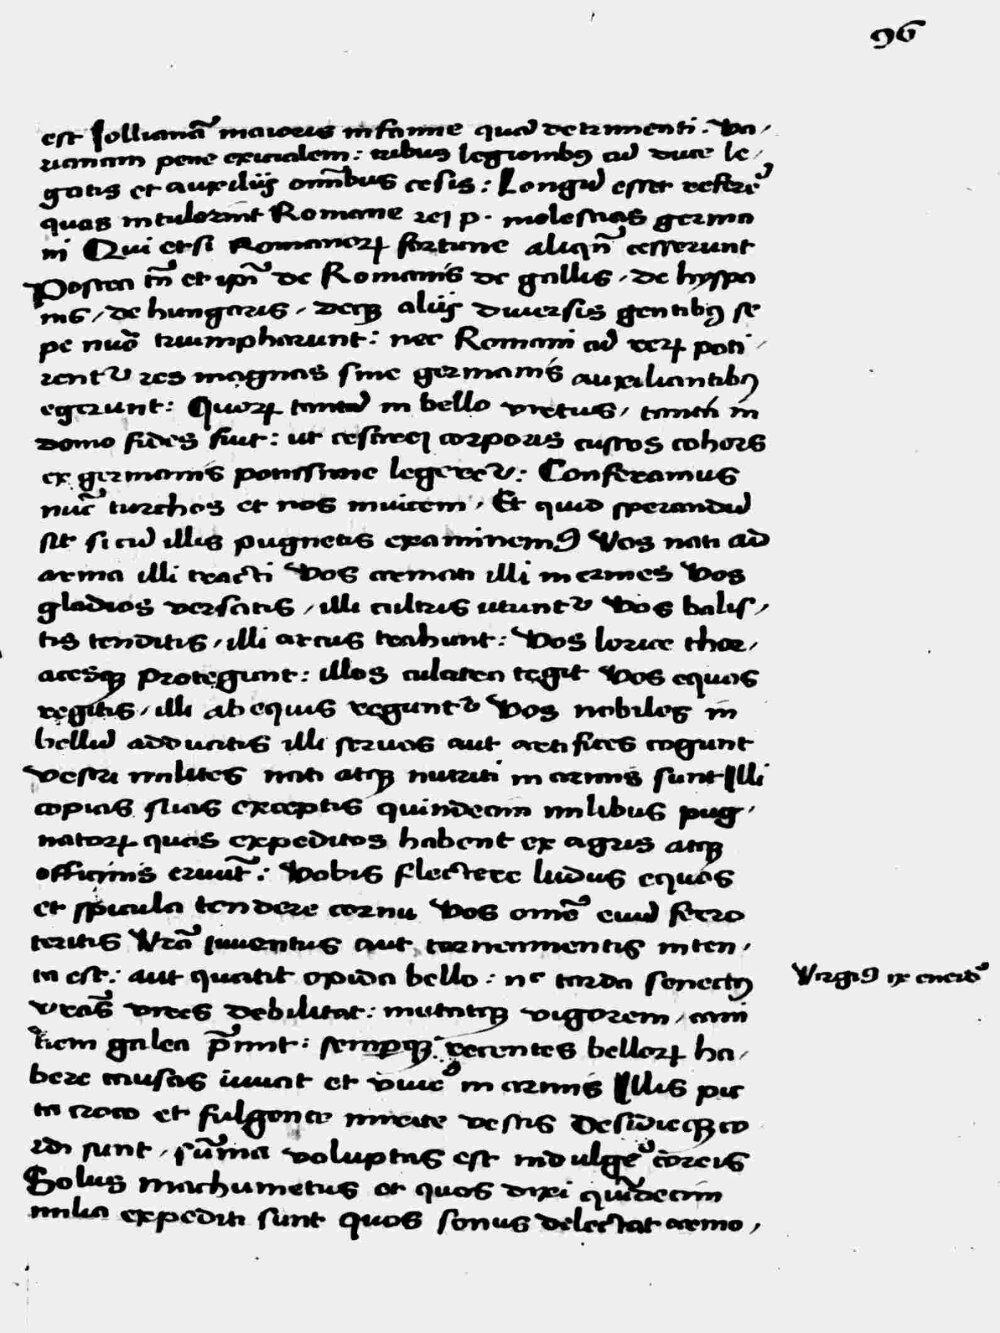 96
est Iollianā maioris infamie quā detrimenti: Va/
rianam pene exicialem: tribus legionibꝫ cū duce le/
gatis et auxilijs omībus cesis: Longū esset referē
quas intulerint Romane rei p. molestias germa
ni Qui etsi Romanoꝝ fortune aliqn̄ cesserunt
Postea tn̄ et ipi̅ de Romanis de gallis, de hyspa
nis, de hungaris, deqꝫ alijs diuersis gentibꝫ se
pe nuō triumpharunt: nec Romani cū reꝝ poti/
rent᷑ res magnas sine germanis auxiliantibꝫ
egerunt: Quoꝝ tanta in bello virtus, tanta in
domo fides fuit: ut cesarei corporis custos cohors
ex germanis potissime legeret᷑: Conferamus
nūc turchos et nos inuicem, Et quid sperandū
sit si cū illis pugnetis examinemꝰ Vos nati ad
arma illi tracti Vos armati illi inermes Vos
gladios versatis, illi cultris utunt᷑ Vos balis/
tis tenditis, illi arcus trahunt: Vos lorice thor/
acesqꝫ protegunt: illos culcitra tegit Vos equos
regitis, illi ab equis regunt᷑ Vos nobiles in
bellū adducitis illi seruos aut artifices cogunt
Vestri milites nati atqꝫ nutriti in armis sunt Illi
copias suas exceptis quindecim milibus pug/
natoꝝ quos expeditos habent ex agris atqꝫ
officinis eruūt: Vobis flectere ludus equos
et spicula tendere cornu Vos omē euū ferro
teritis Vrā iuuentus aut torneamentis inten/
ta est: aut quatit opida bello: nec tarda senectꝫ
vrās vires debilitat: mutatqꝫ vigorem, cani
tiem galea p̄mit: semperqꝫ recentes belloꝝ ha/
bere causas iuuat et viuē in armis Illis pic
ta croco et fulgente murice vestis Desidieqꝫ co
rdi sunt, sūma voluptas est indulgē coreis
Solus machumetus et quos dixi quīdecim
milia expediti sunt quos sonus delectat armo/
Virgiꝰ ix eneidō